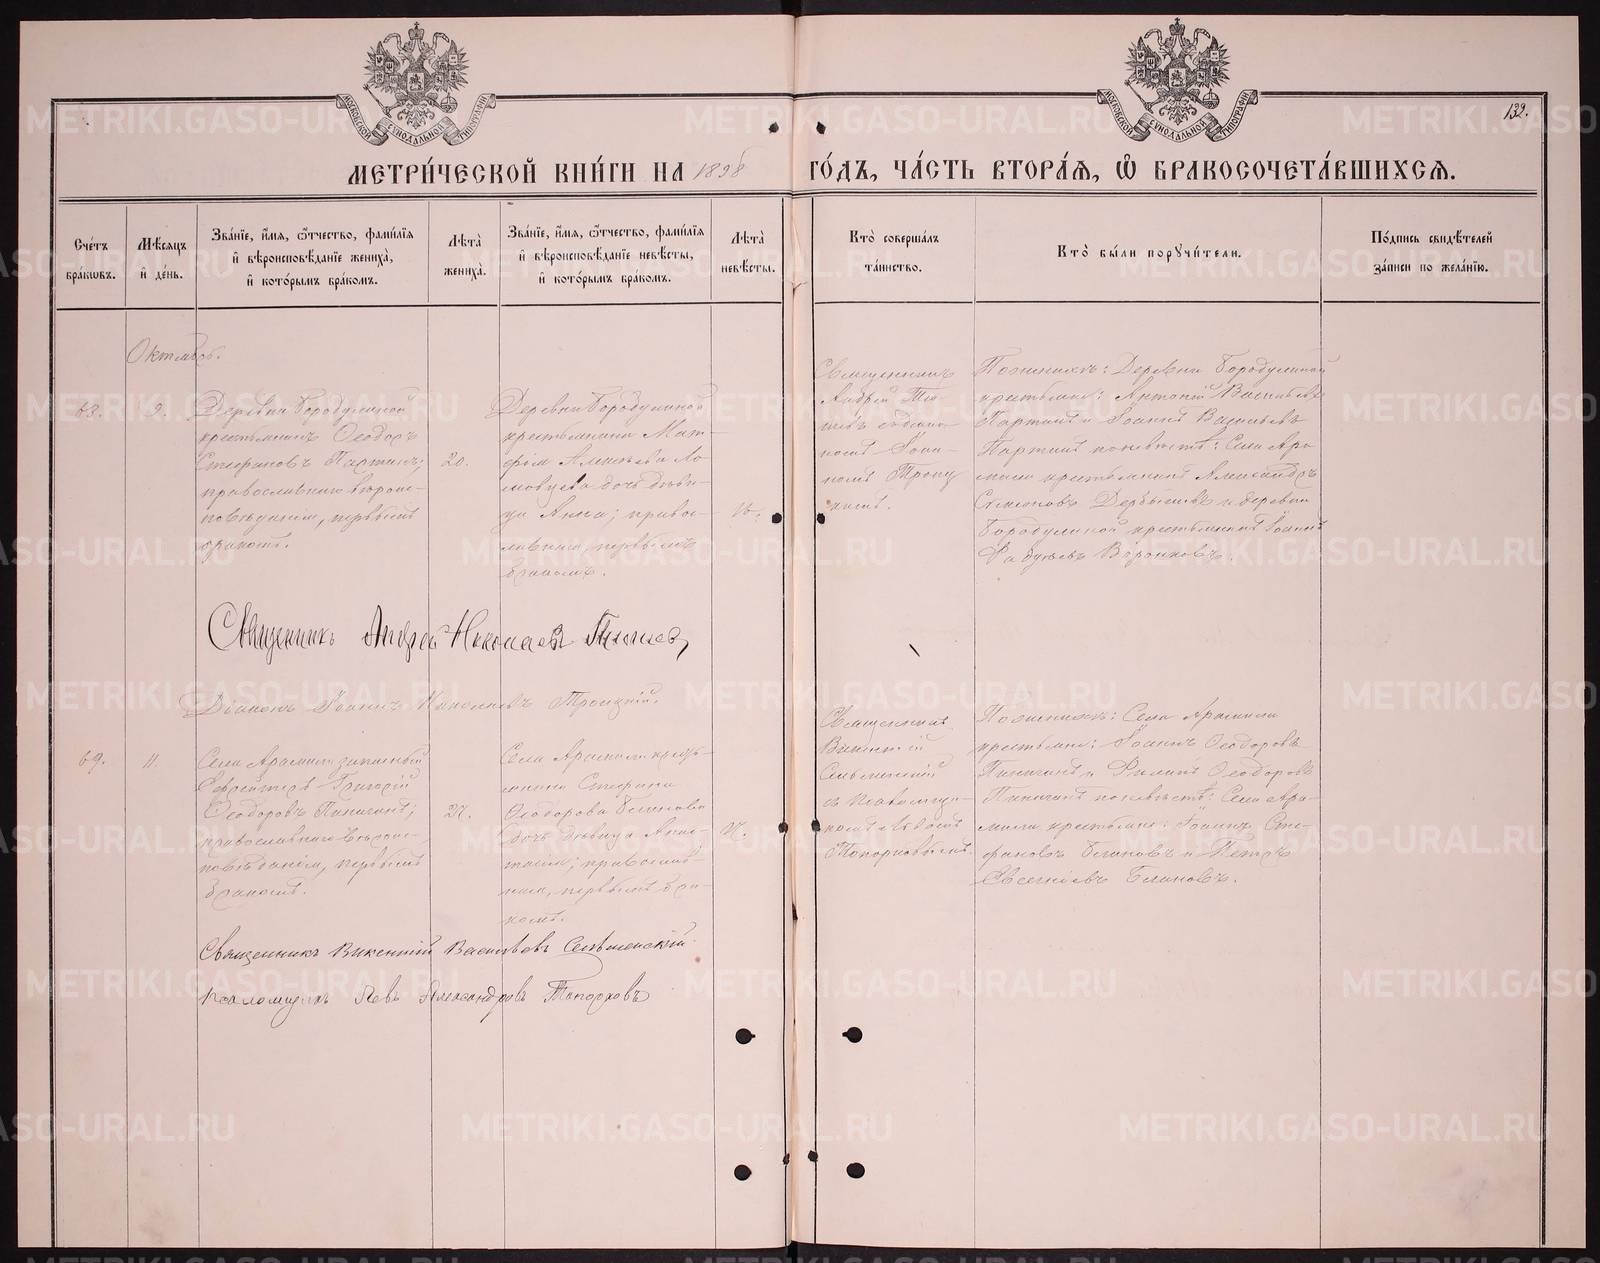 132.
МОСКОВСКОЙ СУНОДАЛЬНОЙ ТИПОГРАФІИ
МОСКОВСКОЙ СУНОДАЛЬНОЙ ТИПОГРАФІИ
МЕТРИ́ЧЕСКОЙ КНИ́ГИ НА 1898 ГО́ДЪ, ЧА́СТЬ ВТОРА́Я, Ѽ БРАКОСОЧЕТА́ВШИХСЯ.
Сче́тъ бра́кѡвъ.
Мѣ́сяцъ и҆ де́нь.
Зва́нїе, и҆́мя, ѻ҆́тчество, фамı́лїя и҆ вѣроисповѣ́данїе жениха̀, и҆ кото́рымъ бра́комъ.
Лѣ́та жениха̀.
Зва́нїе, и҆́мя, ѻ҆́тчество, фамı́лїя и҆ вѣроисповѣ́данїе невѣ́сты, и҆ кото́рымъ бра́комъ.
Лѣ́та невѣ́сты.
Кто̀ соверша́лъ та́инство.
Кто̀ бы́ли поручи́тели.
По́дпись свидѣ́телей за́писи по жела́нїю.
Октябрь.
68.
9.
Деревни Бородулиной
крестьянинъ Ѳеодоръ
Стефановъ Партинъ;
православнаго вѣроис-
повѣданія, первымъ
бракомъ.
20.
Деревни Бородулиной
крестьянина Мат-
фія Алексѣева Ло-
дочь дѣви-
ца Анна; правос-
лавнаго, первымъ
бракомъ.
Священникъ
Андрей
съ діако-
номъ Іоан-
номъ Троиц-
кимъ.
По женихѣ: Деревни Бородулиной
крестьяне: Антоній Васильевъ
Партинъ и Іоаннъ Васильевъ
Партинъ по невѣстѣ: Села Ара-
мили крестьянинъ Александръ
Семеновъ Дербышевъ и деревни
Бородулиной крестьянинъ Іоаннъ
Фадѣевъ Воронковъ.
Священникъ Андрей Николаевъ
Діаконъ Іоаннъ Николаевъ Троицкій.
69.
11.
Села Арамили запасный
Ефрейторъ Григорій
Ѳеодоровъ Пинигинъ;
православнаго вѣроис-
повѣданія, первымъ
бракомъ.
27.
Села Арамили кресть-
янина Стефана
Ѳеодорова Блинова
дочь дѣвица Анас-
тасія; православ-
наго, первымъ бра-
комъ.
Священникъ
Викентій
Селѣменскій
съ псаломщи-
комъ Львомъ
Топорковымъ.
По женихѣ: Села Арамили
крестьяне: Іоаннъ Ѳеодоровъ
Пинигинъ и Филипъ Ѳеодоровъ
Пинигинъ по невѣстѣ: Села Ара-
мили крестьяне: Іоаннъ Сте-
фановъ Блиновъ и Петръ
Евсегніевъ Блиновъ.
Священникъ Викентій Васильевъ Селѣменскій
псаломщикъ Левъ Александровъ Топорковъ
METRIKI.GASO-URAL.RU